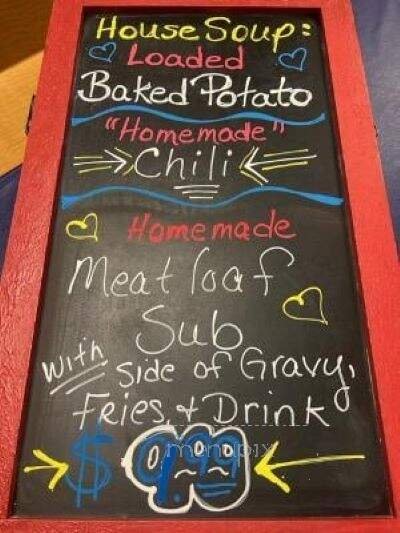 House Soup:
Loaded
Baked Potato
"Homemade"
Chili
Homemade
Meat loaf
Sub
with side of Gravy,
Fries & Drink
$ 9.99
menupix